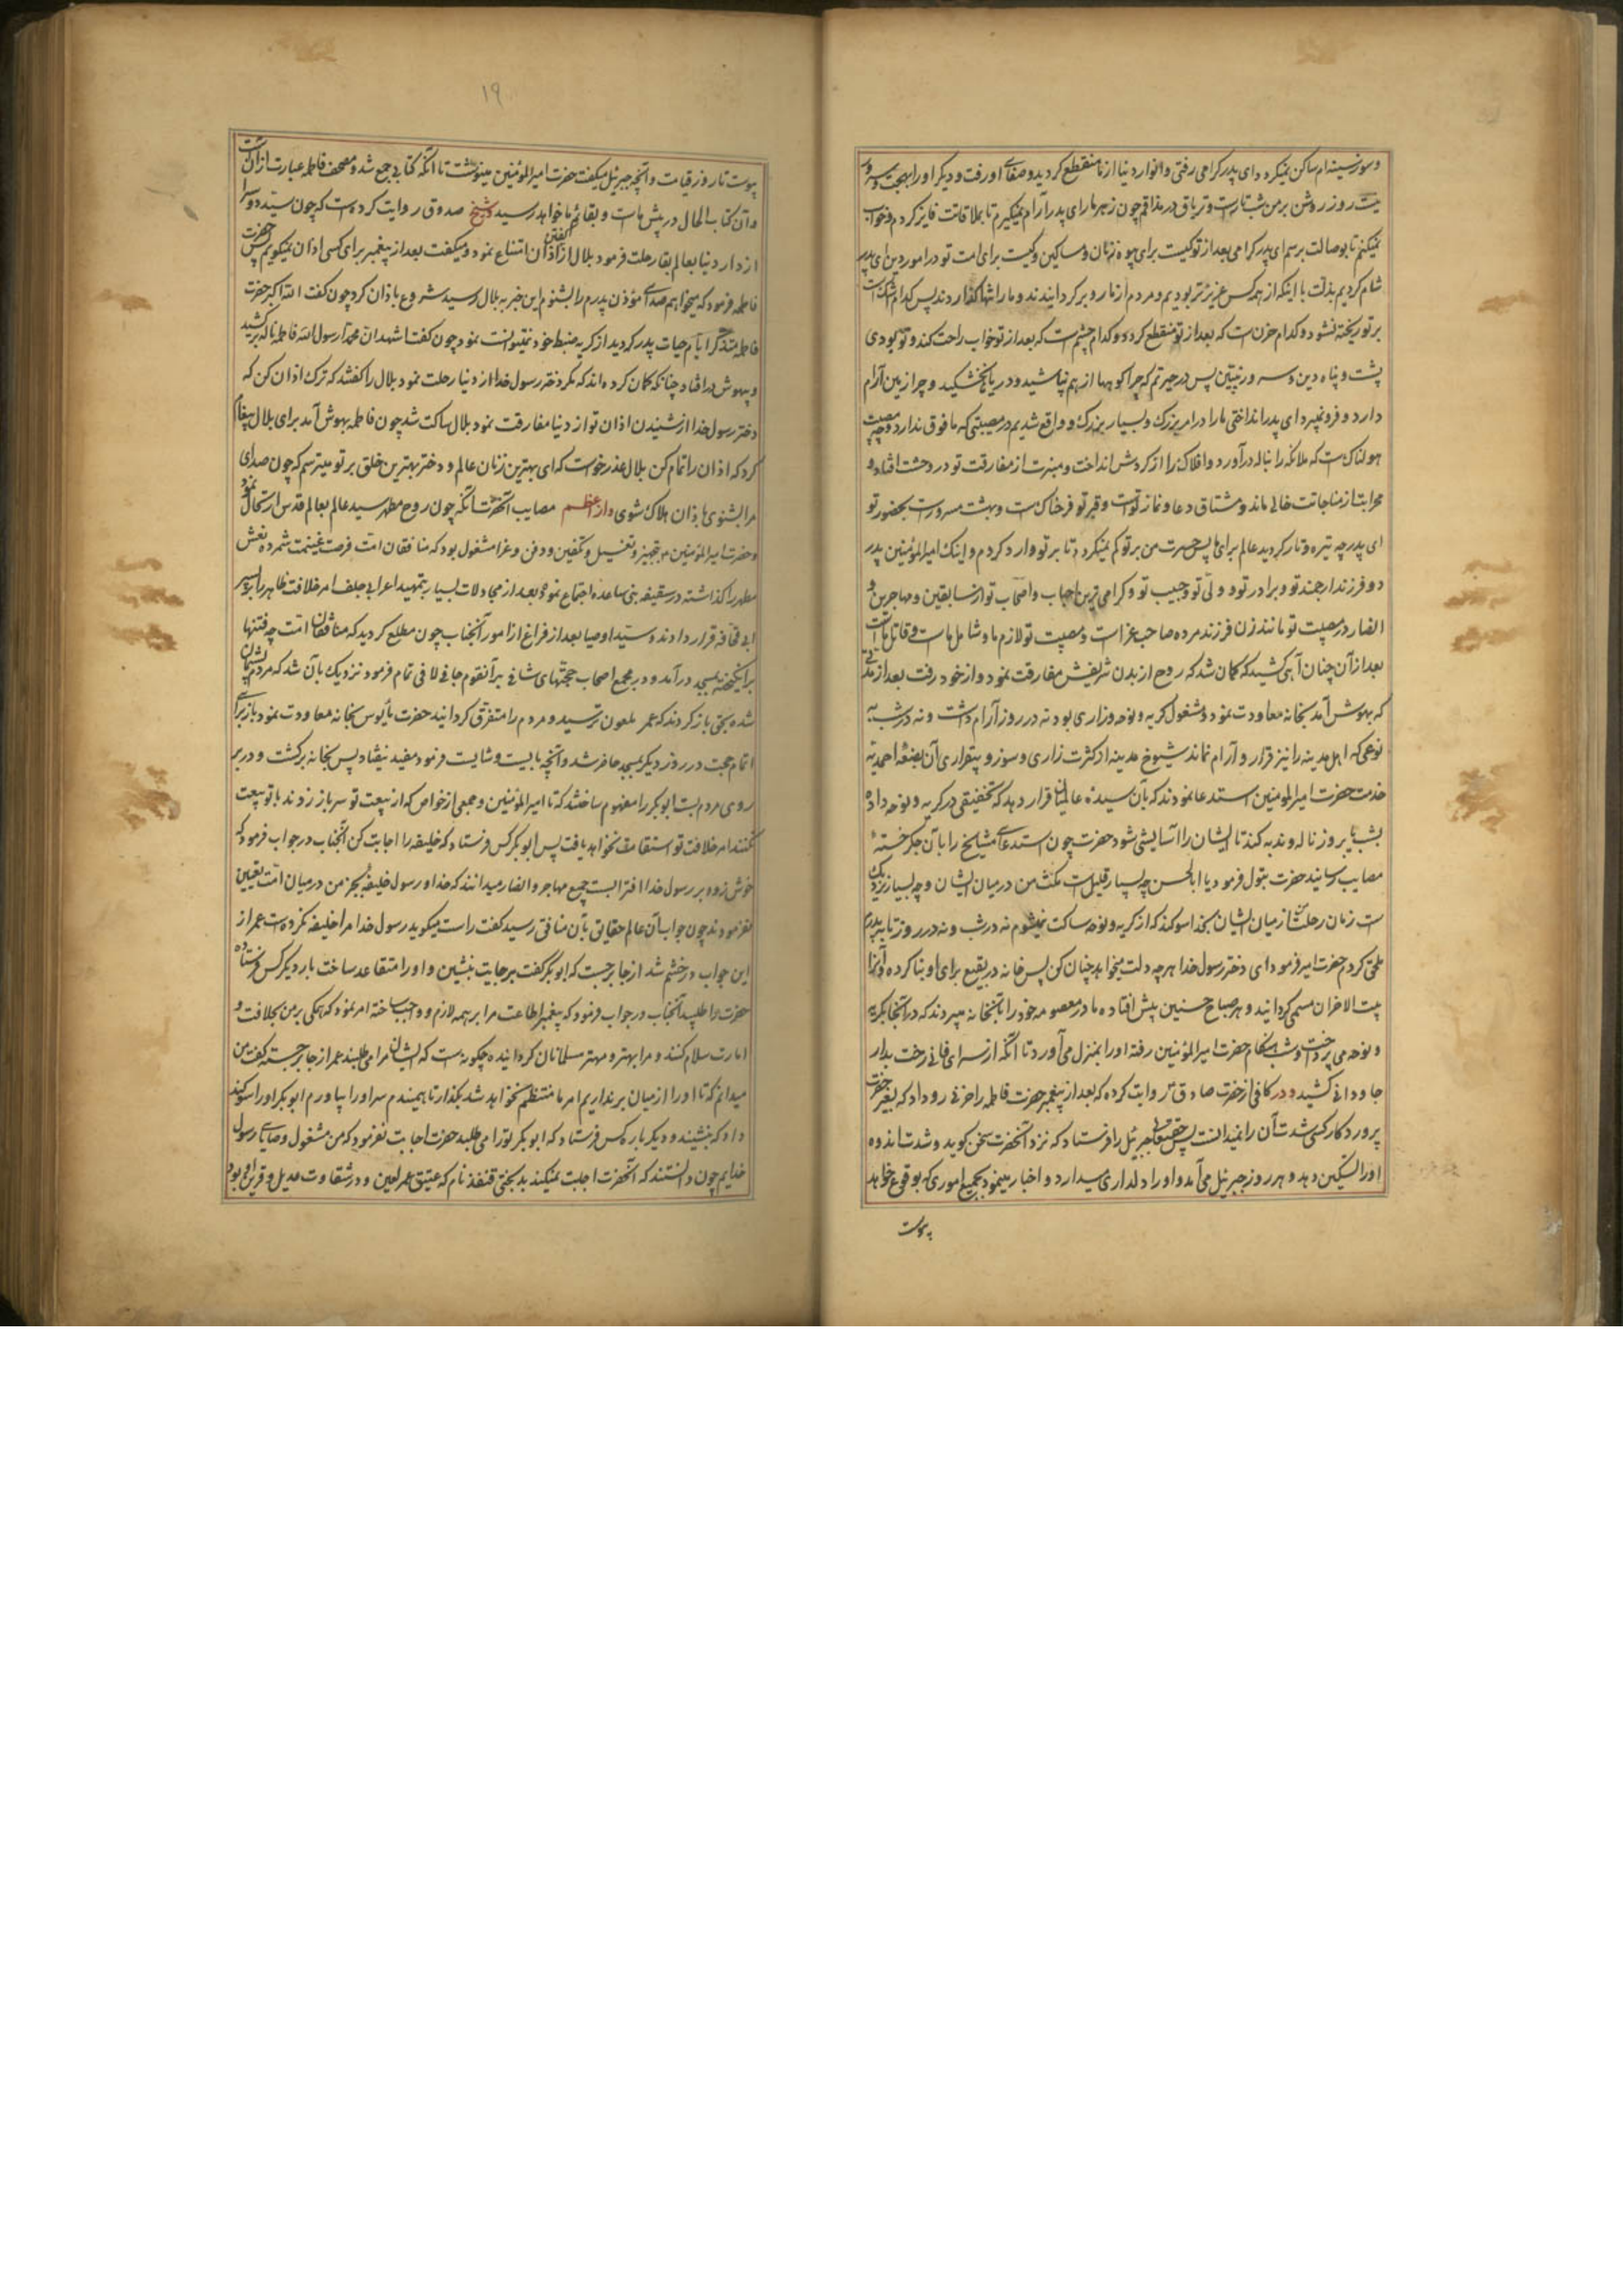 وسوز سینه‌ام ساکن نمیگردد ای پدر گرامی رفتی و انوار دنیا از ما منقطع گردید و صفای او رفت و دیگر او را بهجت و سرور
نیست روز روشن بر من شب تارست و تریاق در مذاقم چون زهر مار ای پدر آرام نمیگیرم تا بملاقاتت فایز گردم و خواب
نمیکنم تا بوصالت برسم ای پدر گرامی بعد از تو کیست برای بیوه زنان و مساکین و کیست برای امت تو در امور دین ای پدر
شام کردیم بذلت با اینکه از همه کس عزیزتر بودیم و مردم از ما رو برگردانیدند و ما را تنها گذاردند پس کدام اشک است
بر تو ریخته نشود و کدام حزنست که بعد از تو منقطع گردد و کدام چشم است که بعد از تو خواب راحت کند و تو بودی
پشت و پناه دین و سرور نبیین پس در حیرتم که چرا کوهها از هم نپاشید و دریاها نخشکید و چرا زمین آرام
دارد و فرو نمیرد ای پدر انداختی ما را در امر بزرگ و بسیار بزرگ و واقع شدیم در مصیبتی که مافوق ندارد و چه مصیبت
هولناکست که ملائکه را بناله درآورد و افلاک را از گردش انداخت و منبرت از مفارقت تو در وحشت افتاد و
محرابت از مناجاتت خالی ماند و مشتاق دعا و نماز تو است و قبر تو فرحناکست و بهشت مسرورست بحضور تو
ای پدر چه تیره و تار گردید عالم برای ما پس حسرت من بر تو کم نمیگردد تا بر تو وارد گردم و اینک امیرالمؤمنین پدر
دو فرزند ارجمند تو و برادر تو و ولی تو و حبیب تو و گرامی‌ترین احباب و اصحاب تو از سابقین و مهاجرین و
انصار در مصیبت تو مانند زن فرزند مرده صاحب عزاست و مصیبت تو لازم ما و شامل ماست و قاتل ماست
بعد از آن چنان آهی کشید که گمان شد که روح از بدن شریفش مفارقت نمود و از خود رفت بعد از مدتی
که بهوش آمد بخانه معاودت نمود و مشغول گریه و نوحه و زاری بود نه در روز آرام داشت و نه در شب به
نوعی که اهل مدینه را نیز قرار و آرام نماند شیوخ مدینه از کثرت زاری و سوز و بیقراری آن بضعهٔ احمدیه
خدمت حضرت امیرالمؤمنین استدعا نمودند که بآن سیدهٔ عالمیان قرار دهد که تخفیفی در گریه و نوحه داده
بشب یا بروز ناله و ندبه کند تا ایشان را آسایشی شود حضرت چون استدعای مشایخ را بآن جگر خستهٔ
مصایب رسانید حضرت بتول فرمود یا ابالحسن چه بسیار قلیل است مکث من در میان ایشان و چه بسیار نزدیک
است زمان رحلت از میان ایشان بخدا سوگند که از گریه و نوحه ساکت نمیشوم نه در شب و نه در روز تا بپدرم
ملحق گردم حضرت امیر فرمود ای دختر رسول خدا هر چه دلت میخواهد چنان کن پس خانه در بقیع برای او بنا کرده و آنرا
بیت الاحزان مسمی گردانید و هر صباح حسنین پیش افتاده مادر معصومه خود را بآنخانه میبردند که در آنجا بگریه
و نوحه می‌پرداخت و شب هنگام حضرت امیرالمؤمنین رفته او را بمنزل می‌آورد تا آنکه از سرای فانی رخت بدار
جاودانی کشید و در کافی از حضرت صادق ع روایت کرده که بعد از پیغمبر حضرت فاطمه را حزنی رو داد که بغیر حضرت
پروردگار کسی شدت آن را نمیدانست پس حقتعالی جبرئیل را فرستاد که نزد آنحضرت سخن گوید و شدت اندوه
او را تسکین دهد و هر روز جبرئیل می‌آمد و او را دلداری میداد و اخبار مینمود بجمیع اموری که بوقوع خواهد
پیوست
۱۹
پیوست تا روز قیامت و آنچه جبرئیل میگفت حضرت امیرالمؤمنین مینوشت تا آنکه کتابی جمع شد و مصحف فاطمه عبارت از آنست
و آن کتاب الحال در پیش ماست و بقائم ما خواهد رسید و شیخ صدوق روایت کرده است که چون سید دو سرا
از دار دنیا بعالم بقا رحلت فرمود بلال از اذان گفتن امتناع نمود و میگفت بعد از پیغمبر برای کسی اذان نمیگویم پس حضرت
فاطمه فرمود که میخواهم صدای مؤذن پدرم را بشنوم این خبر به بلال رسید شروع باذان کرد چون گفت الله اکبر حضرت
فاطمه متذکر ایام حیات پدر گردید از گریه ضبط خود نمیتوانست نمود چون گفت اشهد ان محمدا رسول الله فاطمه ناله برکشید
و بیهوش درافتاد چنانکه گمان کرده‌اند که مگر دختر رسول خدا از دنیا رحلت نمود بلال را گفتند که ترک اذان کن که
دختر رسول خدا از شنیدن اذان تو از دنیا مفارقت نمود بلال ساکت شد چون فاطمه بهوش آمد برای بلال پیغام
کرد که اذان را تمام کن بلال عذر خواست که ای بهترین زنان عالم و دختر بهترین خلق بر تو میترسم که چون صدای
مرا بشنوی باذان هلاک شوی و از اعظم مصایب آنحضرت آنکه چون روح مطهر سید عالم بعالم قدس ارتحال نمود
و حضرت امیرالمؤمنین بتجهیز و تغسیل و تکفین و دفن و عزا مشغول بود که منافقان امت فرصت غنیمت شمرده نعش
مطهر را گذاشته در سقیفه بنی ساعده اجتماع نموده بعد از مجادلات بسیار بتمهید اعرابی جلف امر خلافت ظاهر را بر پسر
ابی قحافه قرار دادند و سید اوصیا بعد از فراغ از امور آنجناب چون مطلع گردید که منافقان امت چه فتنها
برانگیخته بمسجد درآمد و در مجمع اصحاب حجتهای شافی بر آنقوم جافی لافی تمام فرمود نزدیک بآن شد که مردم پشیمان
شده بحق بازگردند که عمر ملعون ترسید و مردم را متفرق گردانید حضرت مأیوس بخانه معاودت نمود باز برای
اتمام حجت در روز دیگر بمسجد حاضر شد و آنچه بایست و شایست فرمود مفید نیفتاد پس بخانه برگشت و در بر
روی مردم بست ابوبکر را مفهوم ساختند که تا امیرالمؤمنین و جمعی از خواص که از بیعت تو سر باز زدند با تو بیعت
نکنند امر خلافت تو استقامت نخواهد یافت پس ابوبکر کس فرستاد که خلیفه را اجابت کن آنجناب در جواب فرمود که
خوش زود بر رسول خدا افترا بست جمیع مهاجر و انصار میدانند که خدا و رسول خلیفهٔ بجز من در میان امت تعیین
نفرمودند چون جواب آن عالم حقایق بآن منافق رسید گفت راست میگوید رسول خدا مرا خلیفه نکرده است عمر از
این جواب در خشم شد از جا برجست که ابوبکر گفت بر جایت بنشین و او را متقاعد ساخت بار دیگر کس فرستاده
حضرت را طلبید آنجناب در جواب فرمود که پیغمبر اطاعت مرا بر همه لازم و واجب ساخته امر نمود که همگی بر من بخلافت و
امارت سلام کنند و مرا بهتر و مهتر مسلمانان گردانیده چگونه است که ایشان مرا می‌طلبند عمر از جا برجست گفت من
میدانم که تا او را از میان برنداریم امر ما منتظم نخواهد شد بگذار تا بهیمندم سر او را بیاورم ابوبکر او را سوگند
داد که بنشیند و دیگر باره کس فرستاد که ابوبکر تو را می‌طلبد حضرت اجابت نفرمود که من مشغول وصایای رسول
خدایم چون دانستند که آنحضرت اجابت نمیکند بدبختی قنفذ نام که عتیق عمر لعین و در شقاوت عدیل و قرین او بود